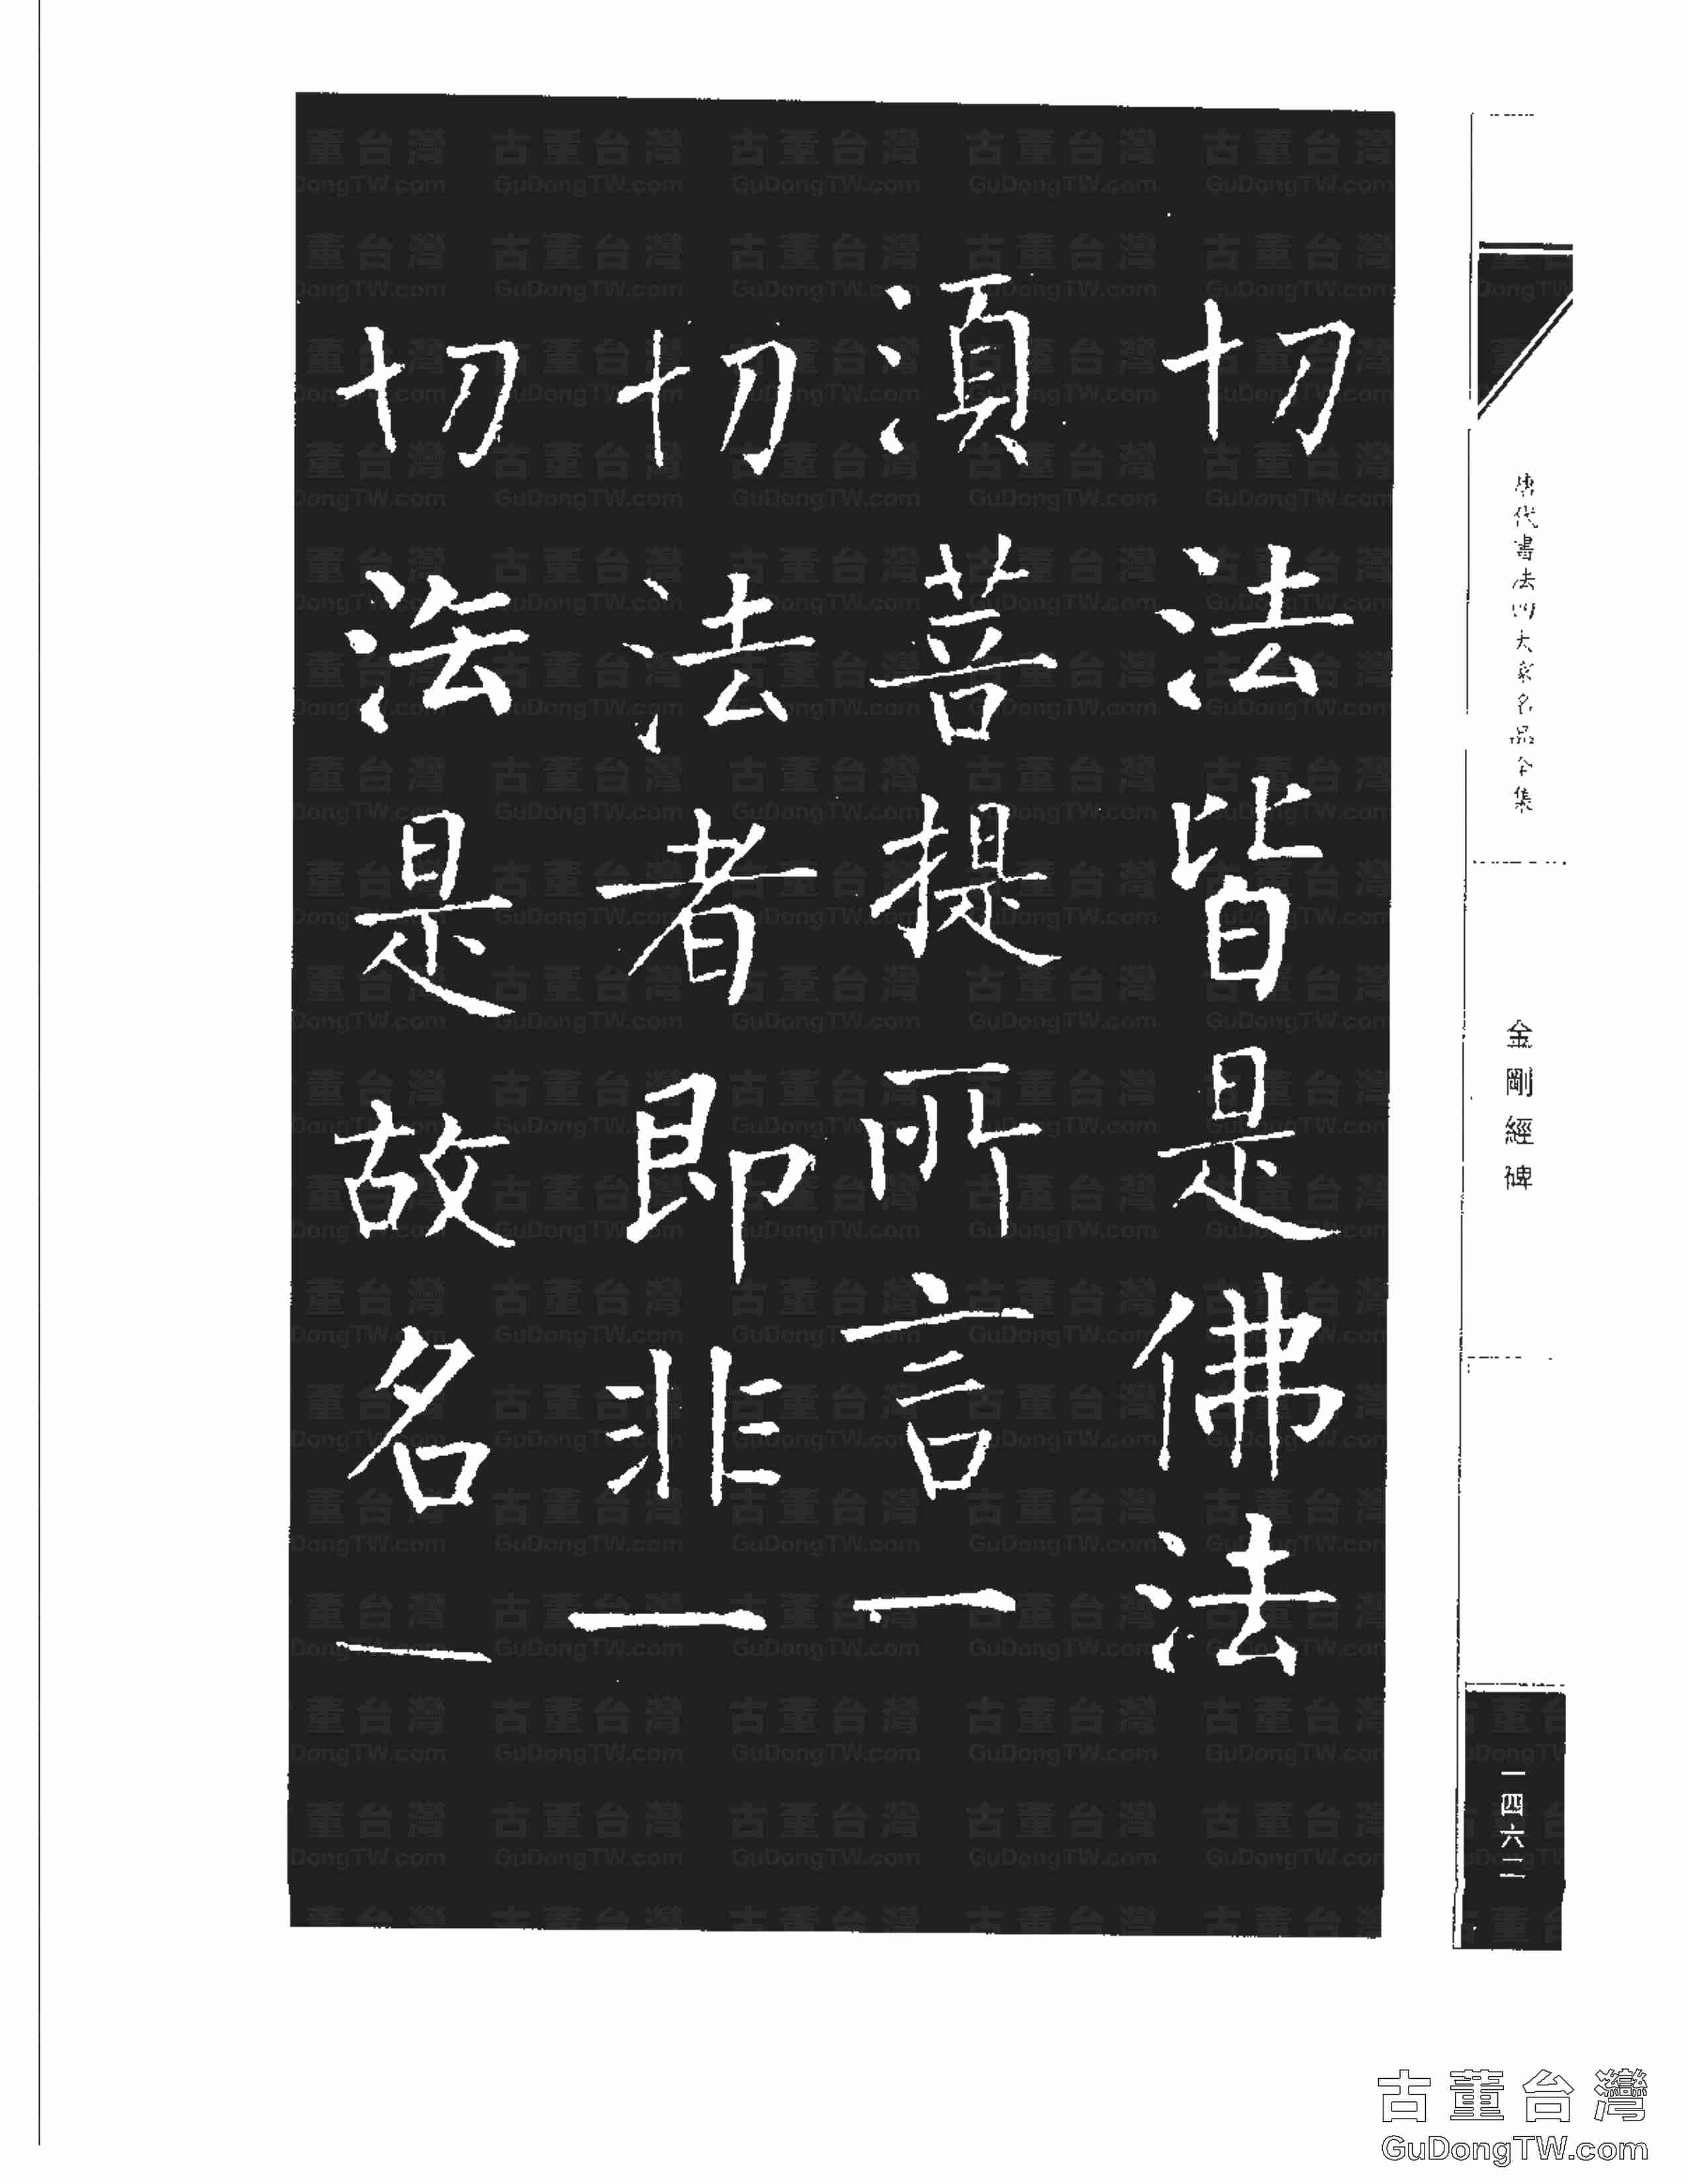 切法皆是佛法
湏菩提所言一
切法者即非一
切法是故名一
唐代書法四大家名品全集
金剛經碑
一四六二
古董台灣
GuDongTW.com